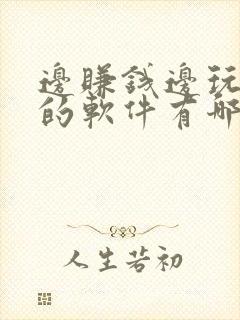 邊賺錢邊玩
的軟件有哪
人生若初